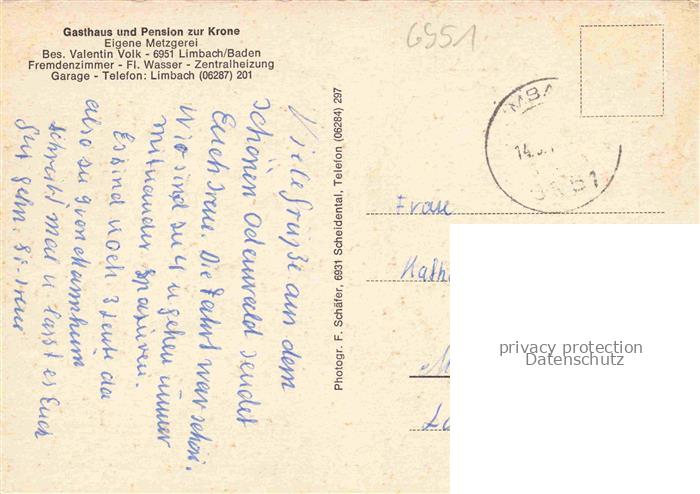 Gasthaus und Pension zur Krone
Eigene Metzgerei
Bes. Valentin Volk - 6951 Limbach/Baden
Fremdenzimmer - Fl. Wasser - Zentralheizung
Garage - Telefon: Limbach (06287) 201
6951
Viele Grüße aus dem
schönen Odenwald sendet
Euch Irene. Die Fahrt war schön.
Wir sind zu 4 u gehen immer
mitnander spazieren.
Es sind noch 3 Leute da
also zu
schreibt mal u lasst es Euch
gut gehn.
Photogr. F. Schäfer, 6931 Scheidental, Telefon (06284) 297
MBA
14.
6951
Frau
Kath
privacy protection
Datenschutz